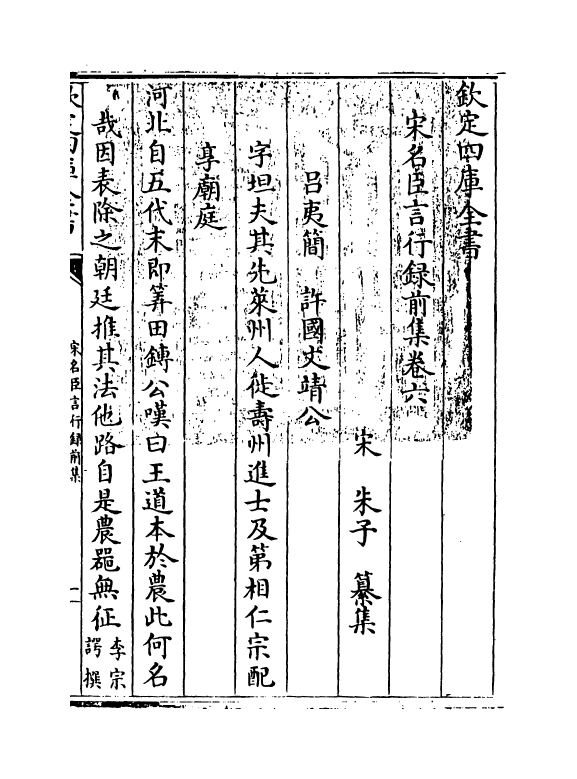 欽定四庫全書
宋名臣言行録前集卷六
宋 朱子 纂集
吕夷簡 許國文靖公
字坦夫其先萊州人徙壽州進士及第相仁宗配
享廟庭
河北自五代末即筭田鎛公嘆曰王道本於農此何名
哉因表除之朝廷推其法他路自是農噐無征李宗
諤撰
欽定四庫全書
宋名臣言行録前集
一